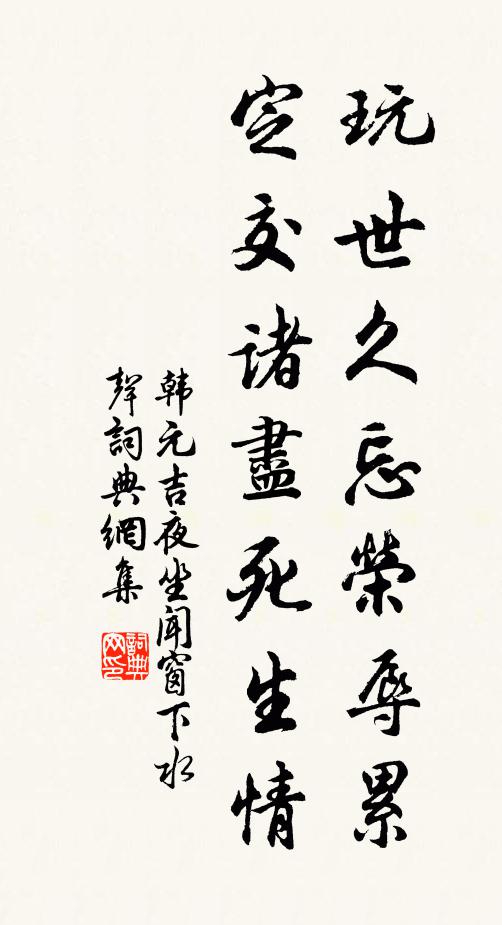 玩世久忘榮辱累
定交諸盡死生情
韩元吉夜坐聞窗下水
聲詞典網集
詞典
网印